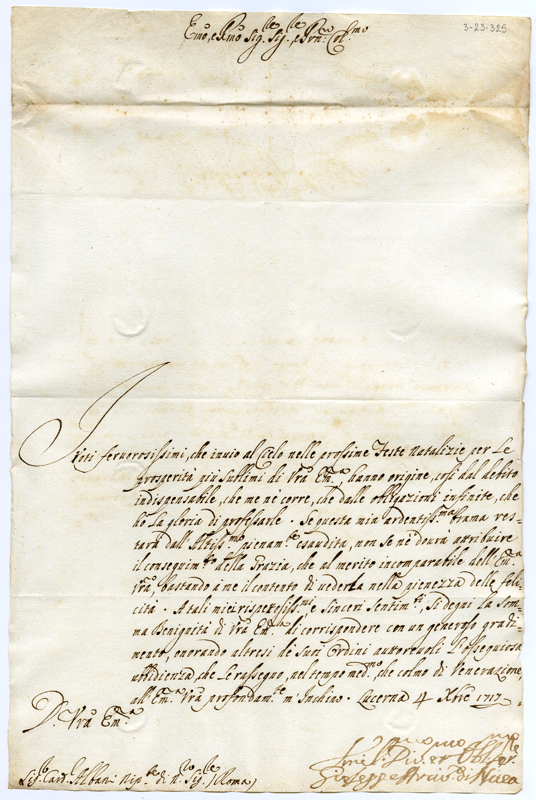 3-23-325
Emo, e Rmo Sigre Sigre, e Prõn Colmo
I Voti feruorosissimi, che inuio al Cielo nelle prossime Feste Natalizie per Le
prosperità più sublimi di Vra Emza, hanno origine, così dal debito
indispensabile, che me ne corre, che dalle obligazioni infinite, che
hò La gloria di professarle. Se questa mia ardentissma brama res-
tarà dall'Altissmo pienamte esaudita, non se ne dourà attribuire
il conseguimto della Grazia, che al merito incomparabile dell'Emza
Vra, bastando à me il contento di uederla nella pienezza delle feli-
cità. A tali miei rispetosissmi e sinceri sentimti, si degni La som-
ma Benignità di Vra Emza di corrispondere con un generoso gradi-
mento, onorando altresì de suoi Ordini autoreuoli L'ossequiosa
ubbidienza, che Le rassegno, nel tempo medmo, che colmo di Venerazione
all'Emza Vra profondamte m'Inchino. Lucerna 4 Xbre 1717.
D. Vra Emza
Sigr Card. Albani Nipte di N. Sigre (Roma)
Giuseppe Arciv. di